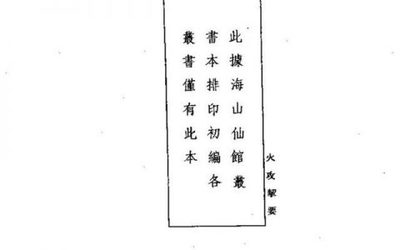 火攻挈要
此據海山仙館叢
書本排印初編各
叢書僅有此本